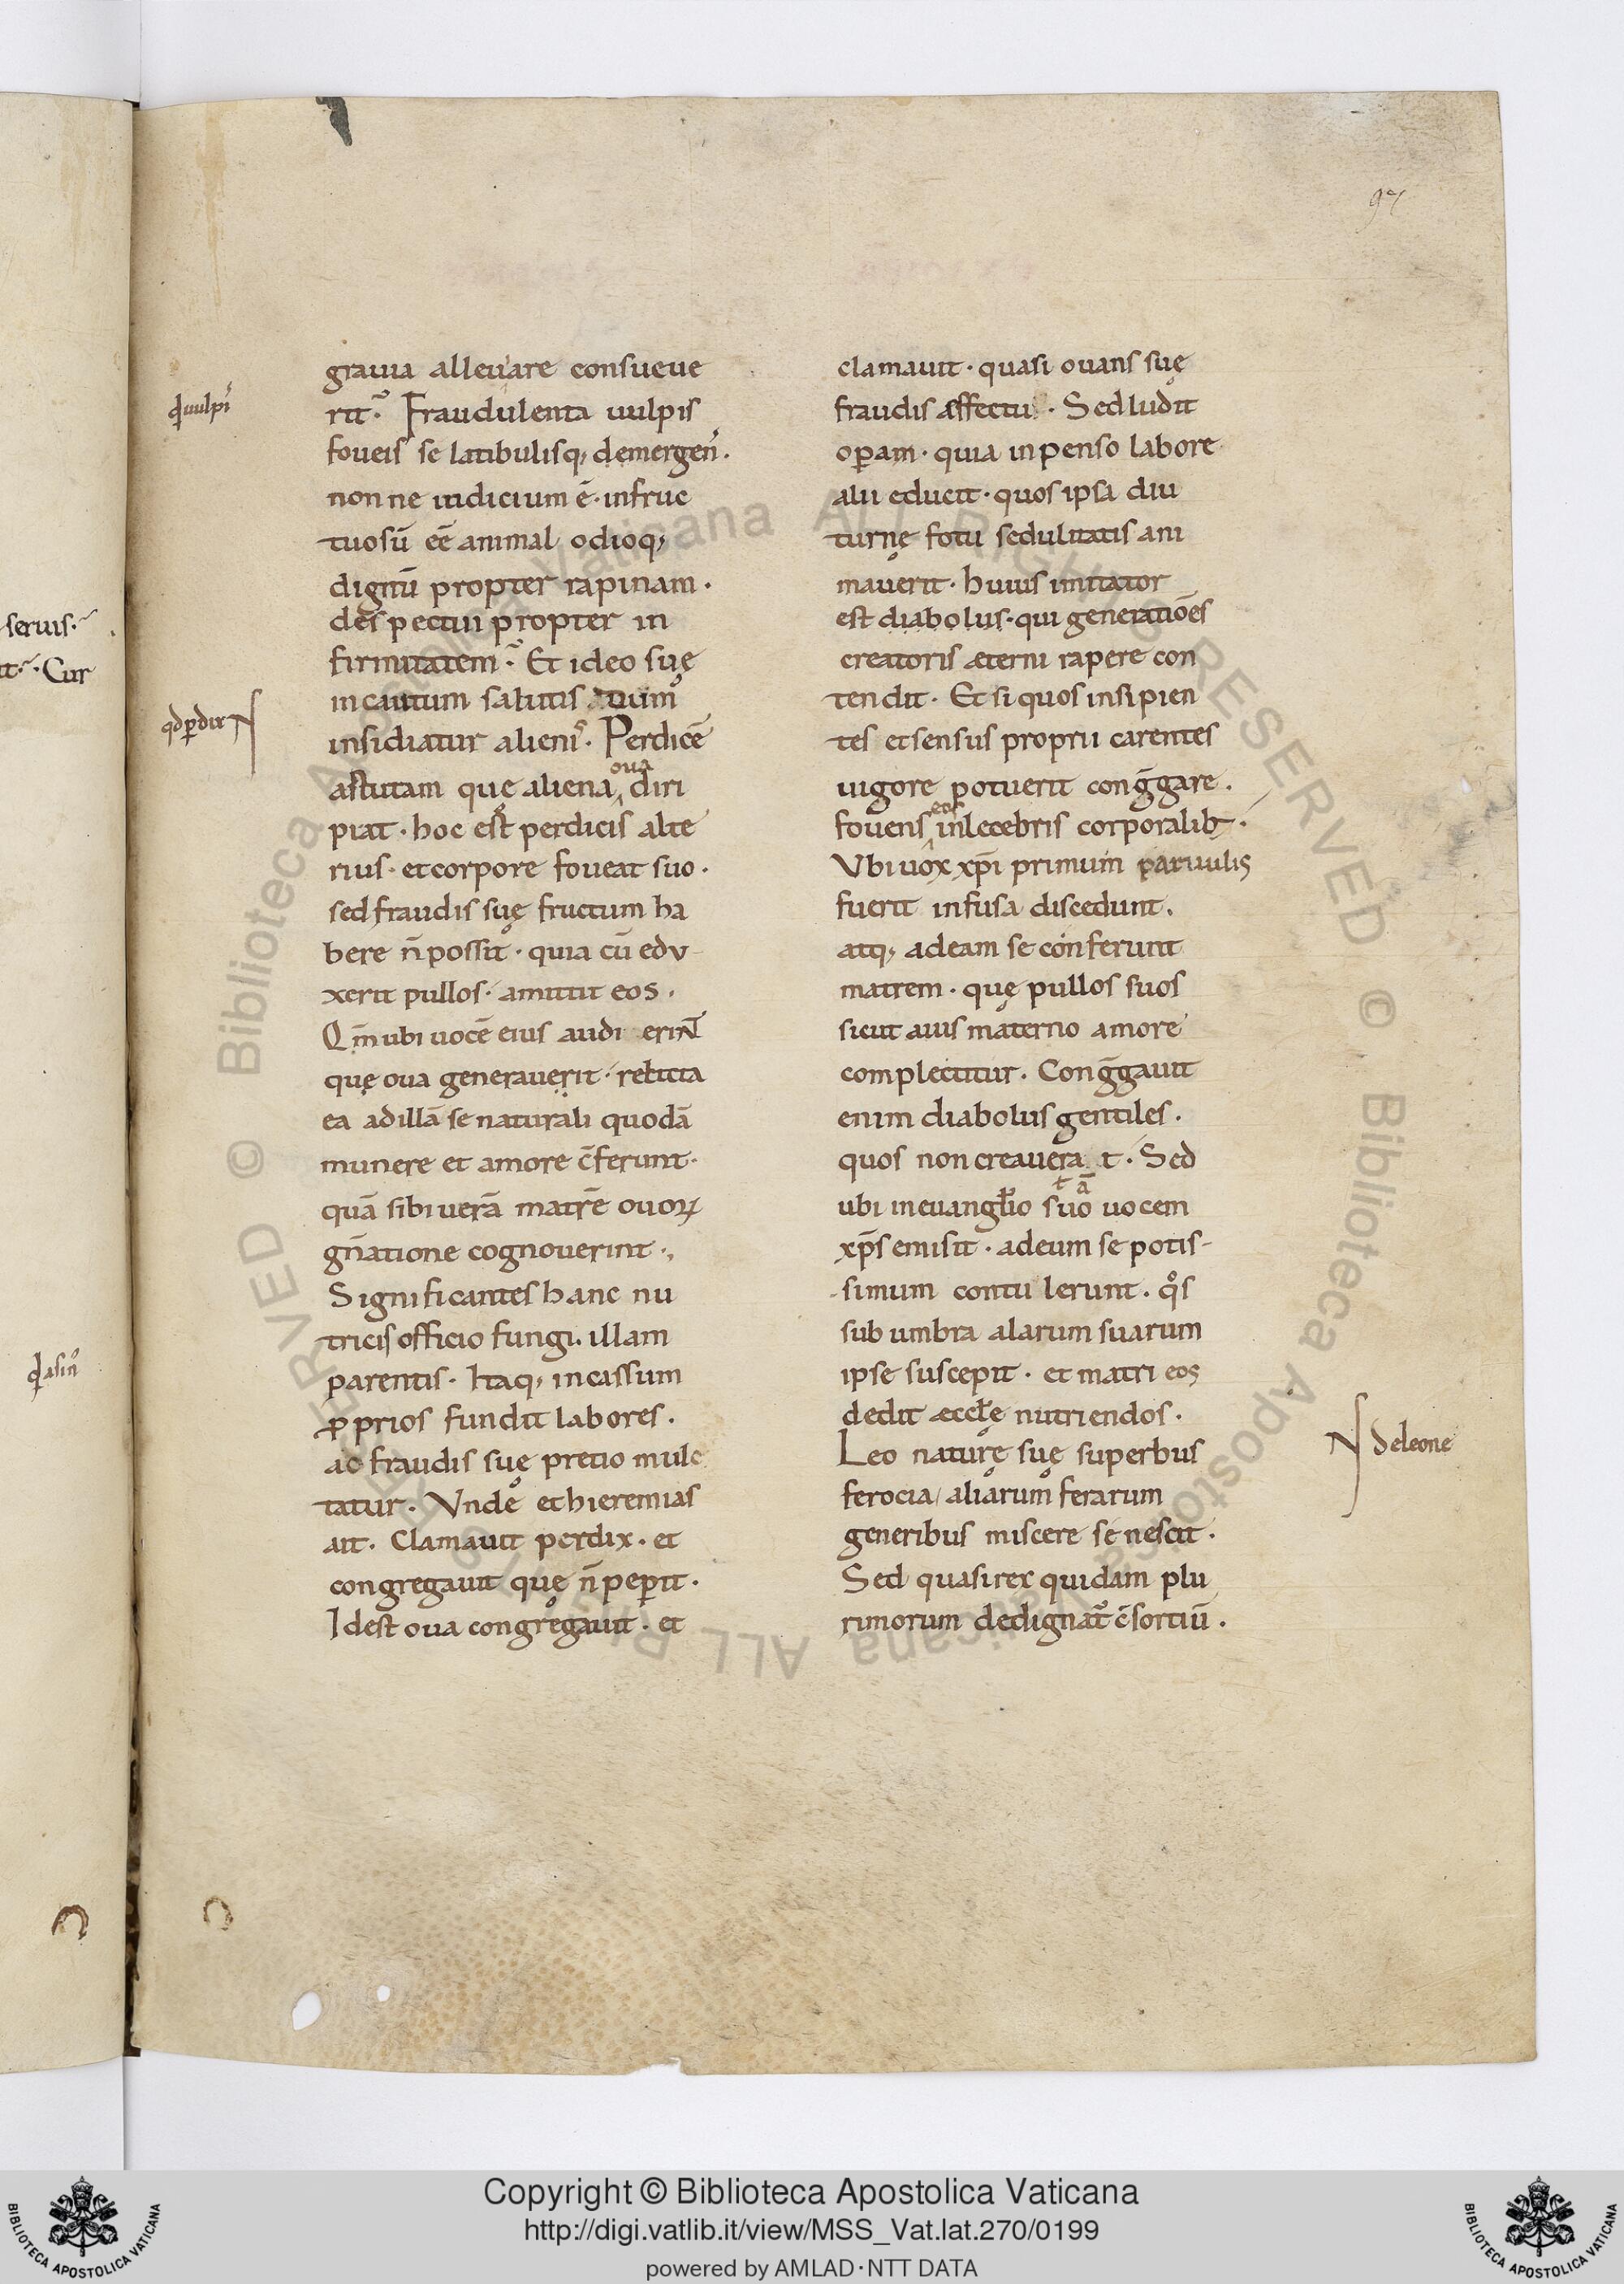 97
seruis.
it. Cur
q̄asin̊
q̄uulpi
qdp̄dix
grauia alleuare consueue
rit. Fraudulenta uulpis
foueis se latibulisq; demergen̄.
nonne iudicium ē· infruc
tuosū eē animal odioq;
dignū propter rapinam·
despectui propter in
firmitatem. Et ideo suę
incautum salutis dum
insidiatur alienį. Perdicē
astutam quę aliena ova diri
piat· hoc est perdicis alte
rius· et corpore foueat suo·
sed fraudis suę fructum ha
bere n̄ possit· quia cū edu
xerit pullos· amittit eos.
Qm̄ ubi uocē eius audi erint
quę oua generauerit· relicta
ea ad illā se naturali quodā
munere et amore c̄ferunt·
quā sibi uerā matrē ouoꝝ
gn̄atione cognouerint.,
Significantes hanc nu
tricis officio fungi. illam
parentis· Itaq; incassum
ꝓprios fundit labores.
ac fraudis suę pretio mulc
tatur. Vnde et hieremias
ait. Clamauit perdix· et
congregauit quę n̄ pep̄it·
Idest oua congregauit· et
clamauit· quasi ouans suę
fraudis affectu· Sed ludit
op̄am· quia inpenso labore
alii educit· quos ipsa diu
turnę fotu sedulitatis ani
mauerit· huius imitator
est diabolus· qui generatiōes
creatoris æterni rapere con
tendit· Et si quos insipien
tes et sensus proprii carentes
uigore potuerit congḡare.
fouens eos inlecebris corporalib;·
Vbi uox xp̄i primum paruulis
fuerit infusa discedunt.
atq; ad eam se conferunt
matrem· quę pullos suos
sicut auis materno amore
complectitur. Congḡauit
enim diabolus gentiles.
quos non creauera t. Sed
ubi in euangłio suo uocem
xp̄s emisit· ad eum se potis-
simum contulerunt. qͦs
sub umbra alarum suarum
ipse suscepit· et matri eos
dedit æccłe nutriendos.
Leo naturę suę superbus
ferocia, aliarum ferarum
generibus miscere se nescit.
Sed quasi rex quidam plu
rimorum dedignat̃ c̄sortiū.
Deleone
Copyright © Biblioteca Apostolica Vaticana
http://digi.vatlib.it/view/MSS_Vat.lat.270/0199
powered by AMLAD·NTT DATA